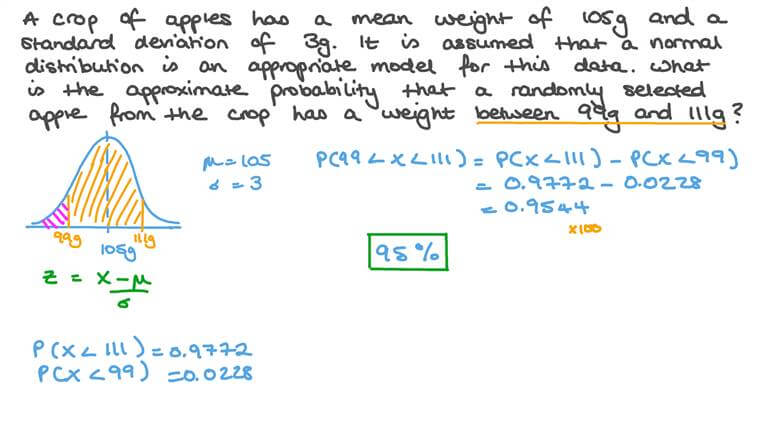 A crop of apples has a mean weight of 105g and a
standard deviation of 3g. It is assumed that a normal
distribution is an appropriate model for this data. What
is the approximate probability that a randomly selected
apple from the crop has a weight between 99g and 111g?
μ = 105
σ = 3
P(99 < X < 111) = P(X < 111) - P(X < 99)
= 0.9772 - 0.0228
= 0.9544
×100
99g 105g 111g
95%
Z = X - μ
σ
P(X < 111) = 0.9772
P(X < 99) = 0.0228